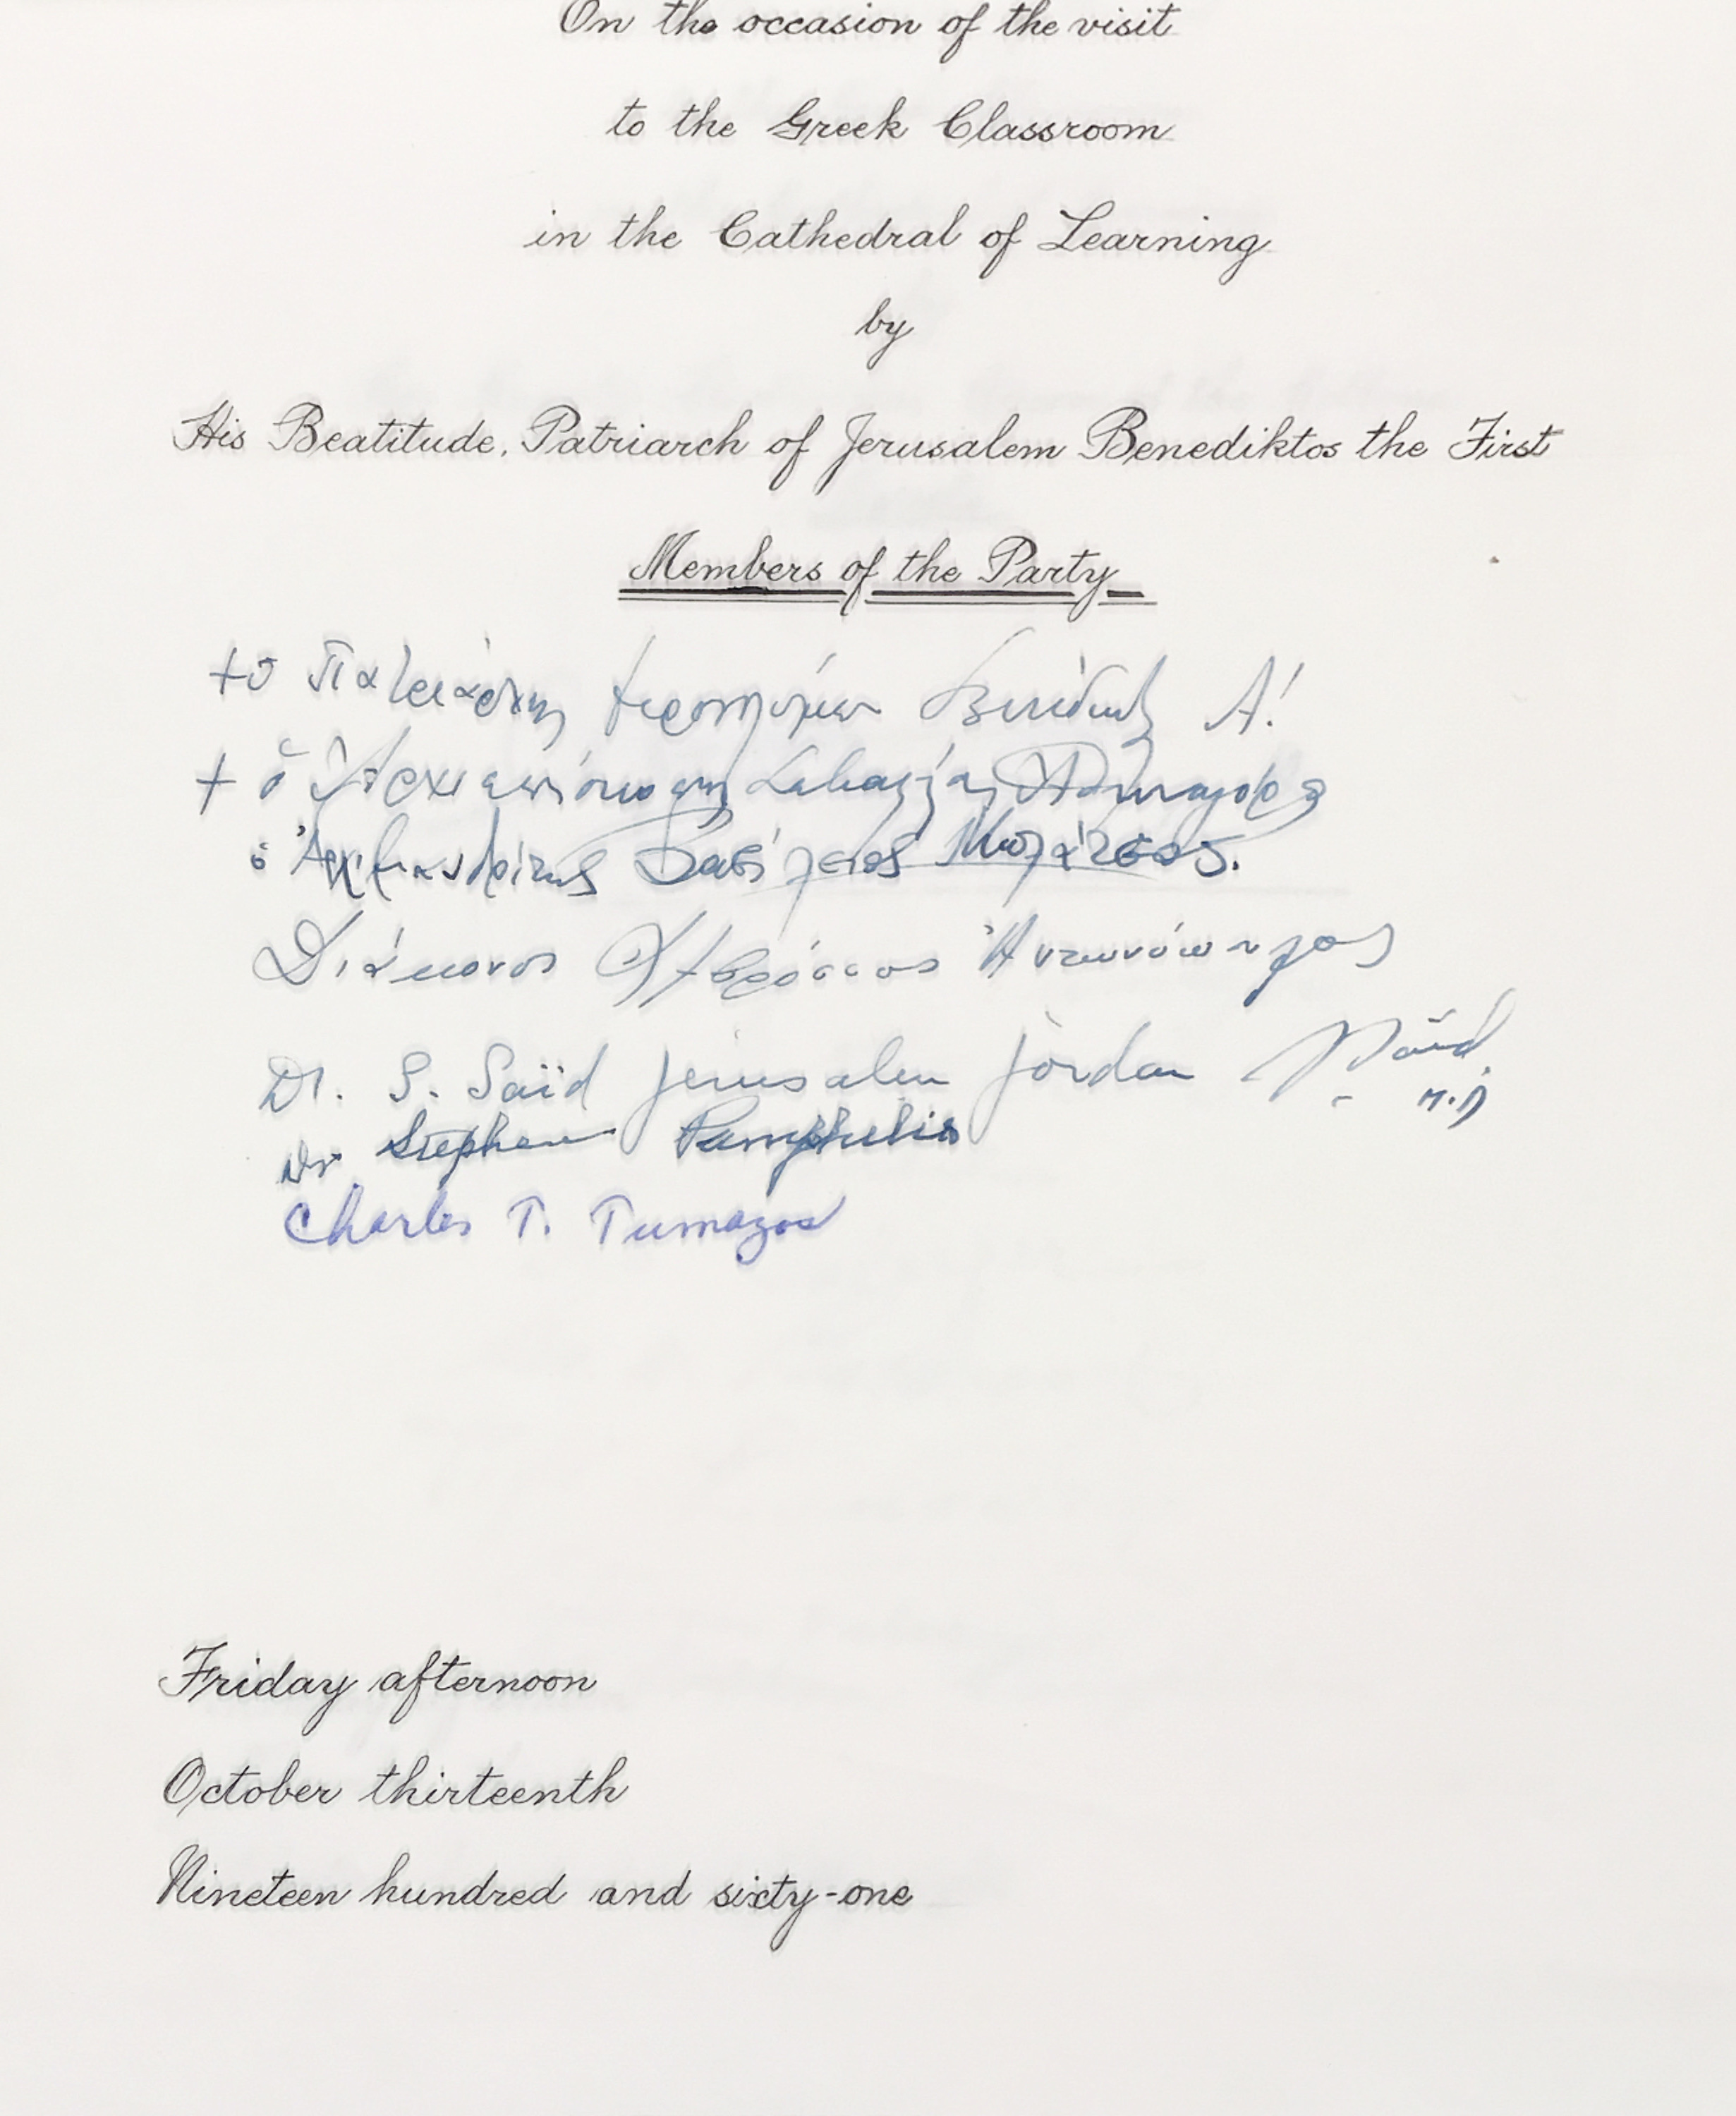 On the occasion of the visit
to the Greek Classroom
in the Cathedral of Learning
by
His Beatitude, Patriarch of Jerusalem Benediktos the First
Members of the Party
+ ὁ Πατριάρχης Ἱεροσολύμων Βενέδικτος Α!
+ ὁ Ἀρχιεπίσκοπος
ὁ Ἀρχιμανδρίτης Βασίλειος
Διάκονος Ἀμβρόσιος Ἀντωνόπουλος
Dr. S. Saïd Jerusalem Jordan Saïd M.D
Dr Stephen Pamphilis
Charles T. Tumazos
Friday afternoon
October thirteenth
Nineteen hundred and sixty-one